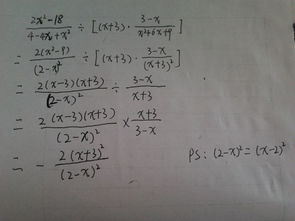 (2x²-18)/(4-4x+x²) ÷ [(x+3)·(3-x)/(x²+6x+9)]
= 2(x²-9)/(2-x)² ÷ [(x+3)·(3-x)/(x+3)²]
= 2(x-3)(x+3)/(2-x)² ÷ (3-x)/(x+3)
= 2(x-3)(x+3)/(2-x)² × (x+3)/(3-x)
= - 2(x+3)²/(2-x)² PS: (2-x)²=(x-2)²